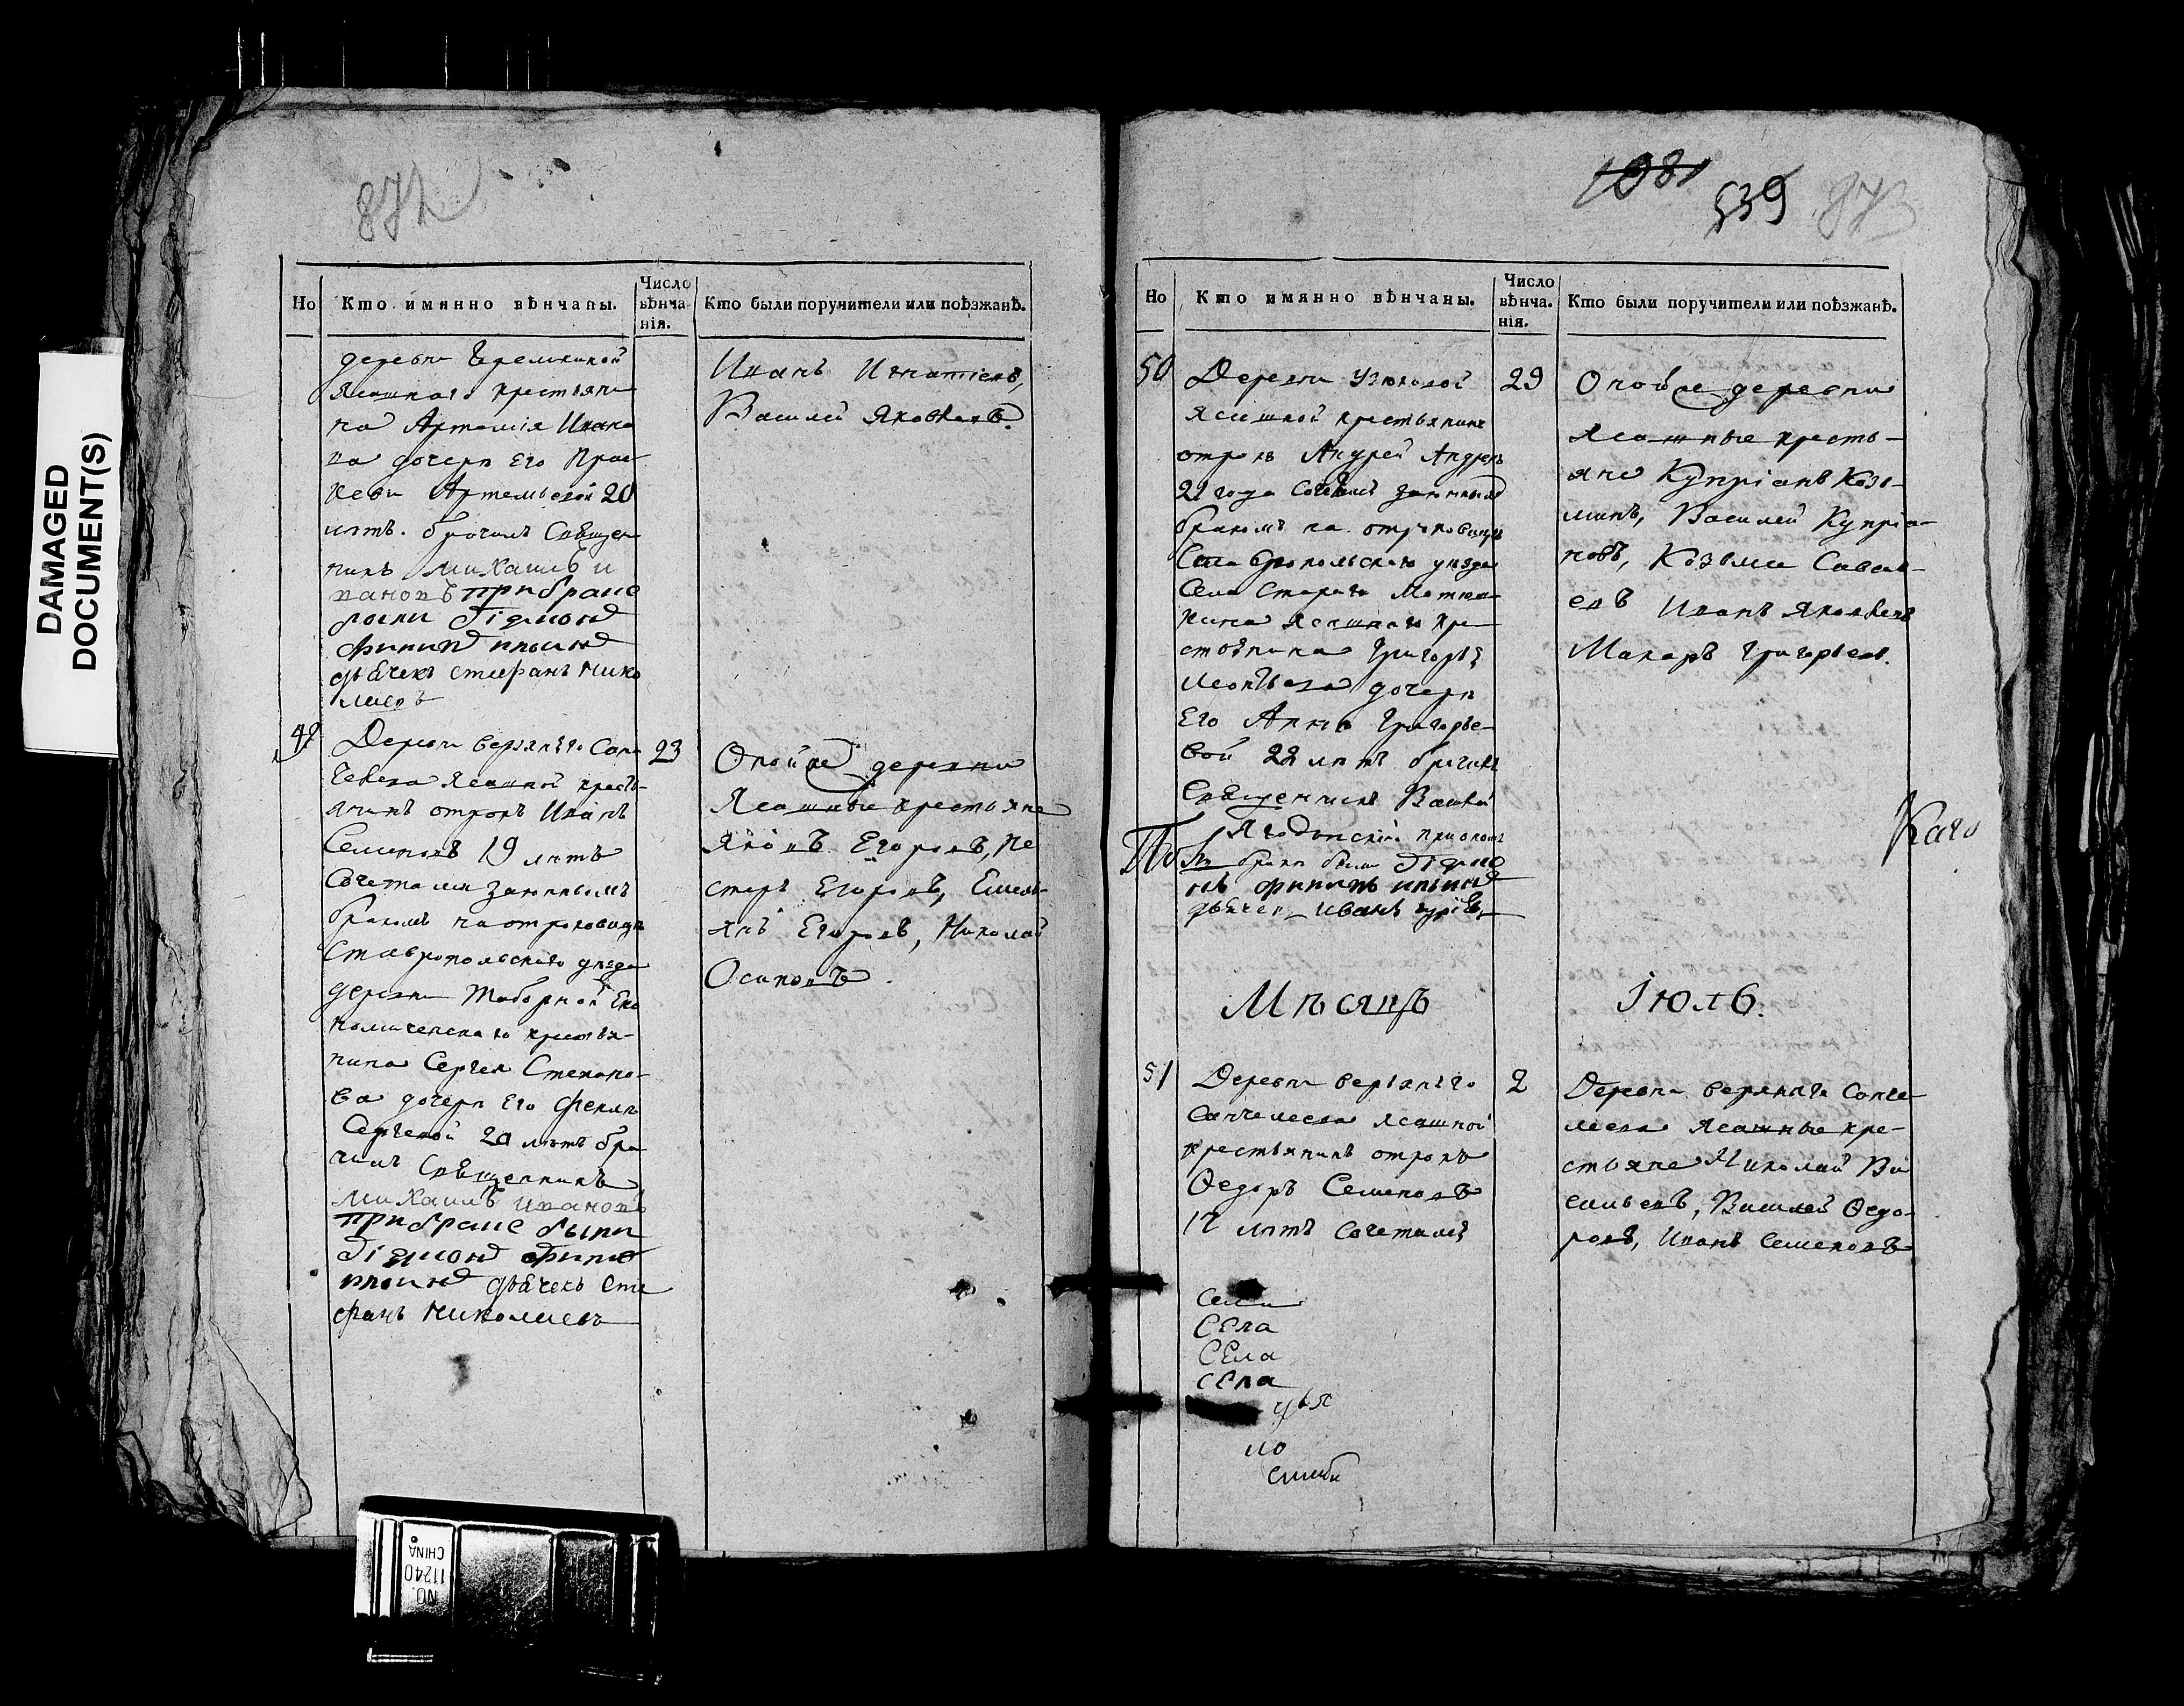 DAMAGED
DOCUMENT(S)
872
Но
Кто имянно вѣнчаны.
Число
вѣнча
нія.
Кто были поручители или поѣзжанѣ.
деревни Еремкиной
Ясашнаго крестьяни
на Артемія Ивано
ва дочери Его Прас
кеви Артемьевой 20
лѣтъ. брачилъ Священ
никъ Михаилъ И
вановъ при браке
были Діяконъ
филипп ильинъ
дьячекъ стефанъ Нико
лаевъ
Иванъ Игнатіевъ,
Василей Яковлевъ.
49
Деревни верхняго Сан
челеева Ясашной кресть-
янинъ отрокъ Иванъ
Семеновъ 19 лѣтъ
Сочетался законнымъ
бракомъ на отроковицѣ
Ставропольскаго уезда
деревни Таборной Еко
номическаго крестья-
нина Сергея Степано-
ва дочери Его Феклѣ
Сергевой 20 лѣтъ бра
чилъ Священникъ
Михаилъ Ивановъ
при браке были
Діяконъ филип
ильинъ дьячекъ Сте
фанъ Николаевъ
23
Оной же деревни
Ясашные крестьяне
Яковъ Егоровъ, Пе
тръ Егоровъ, Емель-
янъ Егоровъ, Николай
Осиповъ.
1081
539 873
Но
Кто имянно вѣнчаны.
Число
вѣнча.
нія.
Кто были поручители или поѣзжанѣ.
50
Деревни Узюковой
ясашной крестьянинъ
отрокъ Андрей Андреевъ
21 года Сочетался законнымъ
бракомъ на отроковицѣ
Ставропольскаго уезда
Села Стараго Матюш-
кина Ясашнаго кре-
стьянина Григорья
Леонтьева дочери
Его Анны Григорье-
вой 22 лѣтъ брачилъ
Священникъ Василій
Ягодинскій при ономъ
браке были Діяко
нъ филипъ ильинъ
дьячекъ Иванъ гурьевъ
29
Оной же деревни
Ясашные кресть-
яне Купріанъ Козь-
минъ, Василей Купріа-
новъ, Козьма Савель-
евъ Иванъ Яковлевъ
Макаръ Григорьевъ.
По
Каго
Мѣсяцъ Іюль.
51
Деревни верхняго
Санчелеева ясашной
крестьянинъ отрокъ
Ѳедоръ Семеновъ
17 лѣтъ Сочетался
2
Деревни верхняго Санче-
леева Ясашные кре-
стьяне Николай Ва
сильевъ, Василей Ѳедо-
ровъ, Иванъ Семеновъ
Села
Села
Села
села

NO.
11240
CHINA